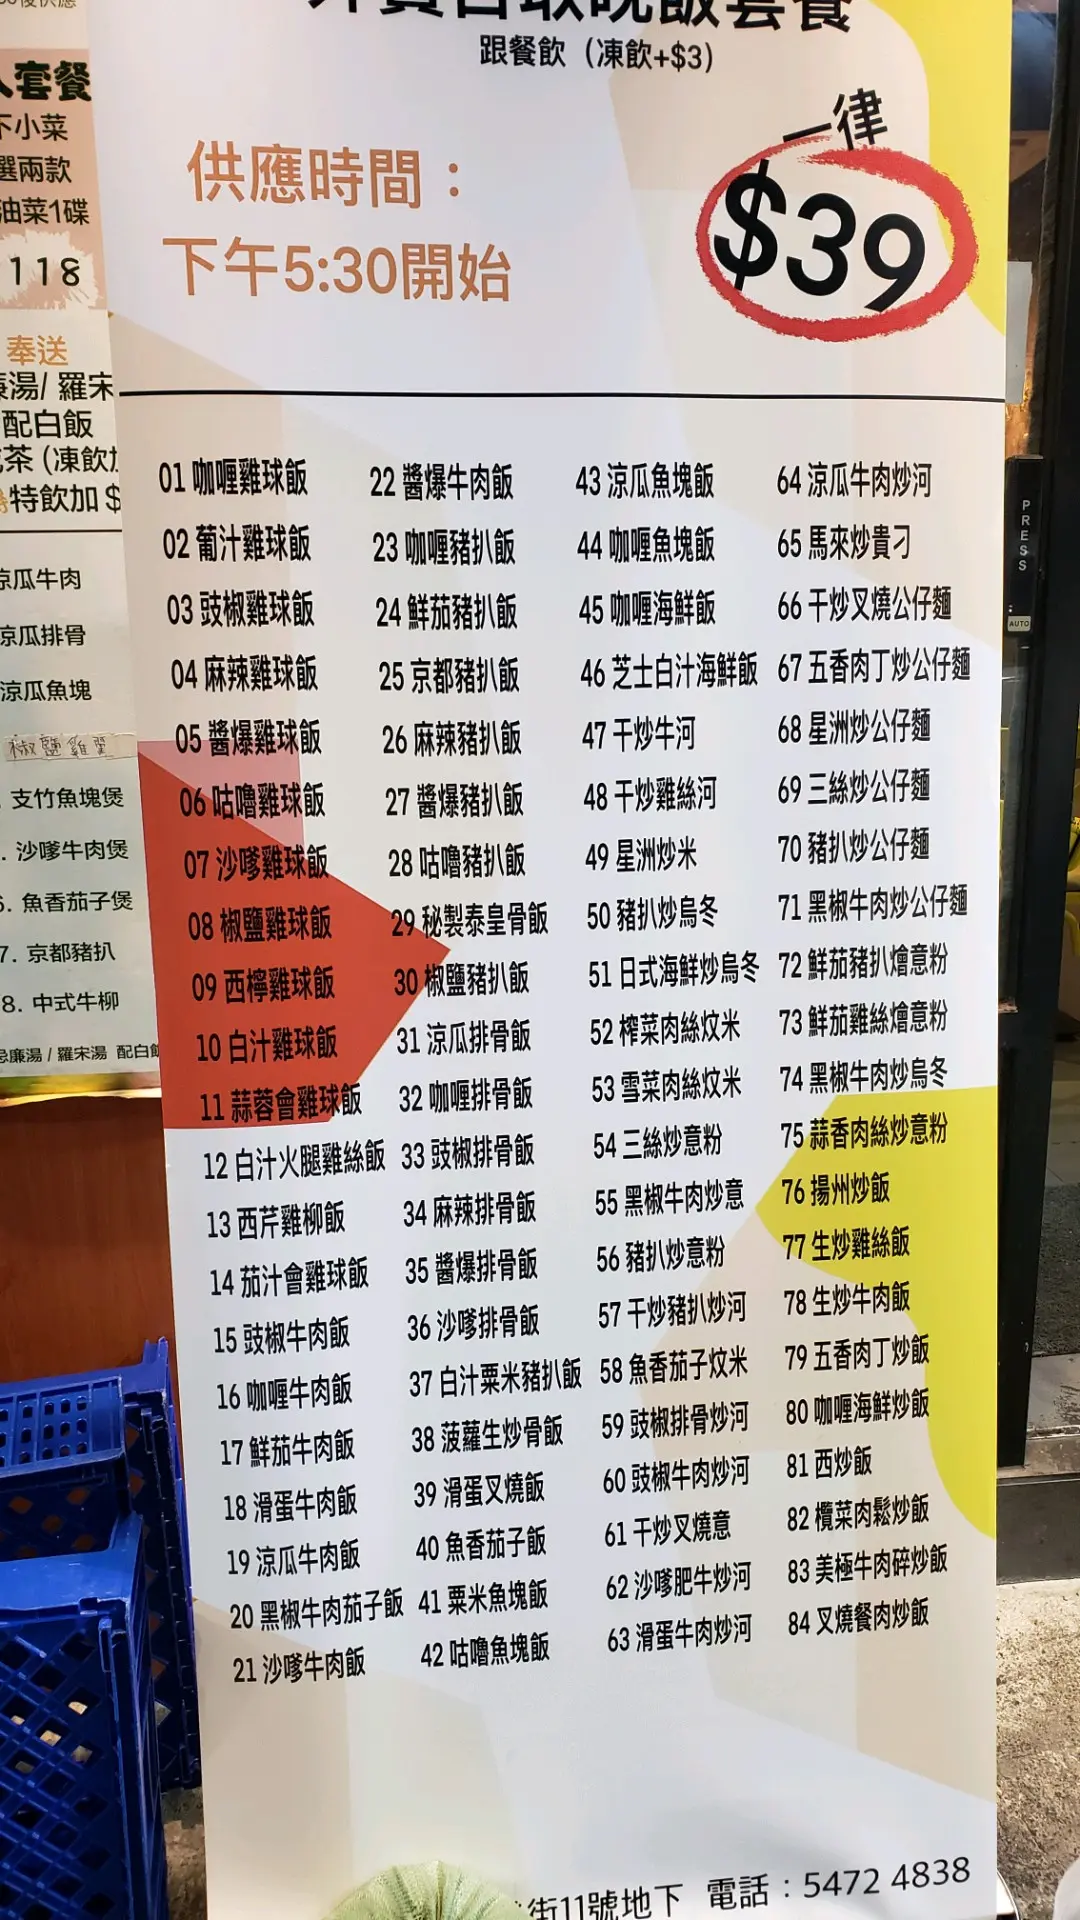 套餐
下小菜
選兩款
油菜1碟
118
奉送
湯/ 羅宋
配白飯
茶 (凍飲
特飲加 $
涼瓜牛肉
涼瓜排骨
涼瓜魚塊
椒鹽雞翼
支竹魚塊煲
. 沙嗲牛肉煲
6. 魚香茄子煲
7. 京都豬扒
8. 中式牛柳
忌廉湯 / 羅宋湯 配白飯
外賣自取晚飯套餐
跟餐飲（凍飲+$3）
一律
$39
供應時間：
下午5:30開始
01 咖喱雞球飯
02 葡汁雞球飯
03 豉椒雞球飯
04 麻辣雞球飯
05 醬爆雞球飯
06 咕嚕雞球飯
07 沙嗲雞球飯
08 椒鹽雞球飯
09 西檸雞球飯
10 白汁雞球飯
11 蒜蓉會雞球飯
12 白汁火腿雞絲飯
13 西芹雞柳飯
14 茄汁會雞球飯
15 豉椒牛肉飯
16 咖喱牛肉飯
17 鮮茄牛肉飯
18 滑蛋牛肉飯
19 涼瓜牛肉飯
20 黑椒牛肉茄子飯
21 沙嗲牛肉飯
22 醬爆牛肉飯
23 咖喱豬扒飯
24 鮮茄豬扒飯
25 京都豬扒飯
26 麻辣豬扒飯
27 醬爆豬扒飯
28 咕嚕豬扒飯
29 秘製泰皇骨飯
30 椒鹽豬扒飯
31 涼瓜排骨飯
32 咖喱排骨飯
33 豉椒排骨飯
34 麻辣排骨飯
35 醬爆排骨飯
36 沙嗲排骨飯
37 白汁粟米豬扒飯
38 菠蘿生炒骨飯
39 滑蛋叉燒飯
40 魚香茄子飯
41 粟米魚塊飯
42 咕嚕魚塊飯
43 涼瓜魚塊飯
44 咖喱魚塊飯
45 咖喱海鮮飯
46 芝士白汁海鮮飯
47 干炒牛河
48 干炒雞絲河
49 星洲炒米
50 豬扒炒烏冬
51 日式海鮮炒烏冬
52 榨菜肉絲炆米
53 雪菜肉絲炆米
54 三絲炒意粉
55 黑椒牛肉炒意
56 豬扒炒意粉
57 干炒豬扒炒河
58 魚香茄子炆米
59 豉椒排骨炒河
60 豉椒牛肉炒河
61 干炒叉燒意
62 沙嗲肥牛炒河
63 滑蛋牛肉炒河
64 涼瓜牛肉炒河
65 馬來炒貴刁
66 干炒叉燒公仔麵
67 五香肉丁炒公仔麵
68 星洲炒公仔麵
69 三絲炒公仔麵
70 豬扒炒公仔麵
71 黑椒牛肉炒公仔麵
72 鮮茄豬扒燴意粉
73 鮮茄雞絲燴意粉
74 黑椒牛肉炒烏冬
75 蒜香肉絲炒意粉
76 揚州炒飯
77 生炒雞絲飯
78 生炒牛肉飯
79 五香肉丁炒飯
80 咖喱海鮮炒飯
81 西炒飯
82 欖菜肉鬆炒飯
83 美極牛肉碎炒飯
84 叉燒餐肉炒飯
街11號地下 電話：5472 4838
PRESS
AUTO